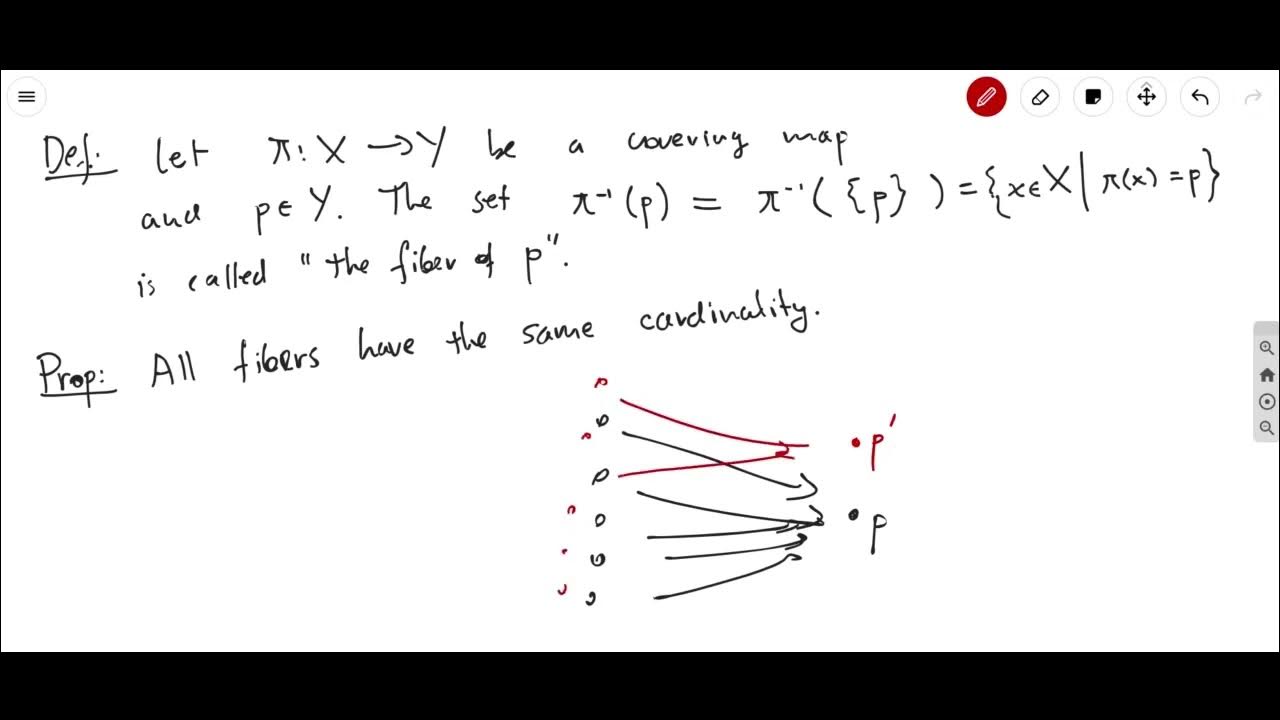 Def: Let π: X → Y be a covering map
and p ∈ Y. The set π⁻¹(p) = π⁻¹({p}) = {x ∈ X | π(x) = p}
is called "the fiber of p".
Prop: All fibers have the same cardinality.
p'
p